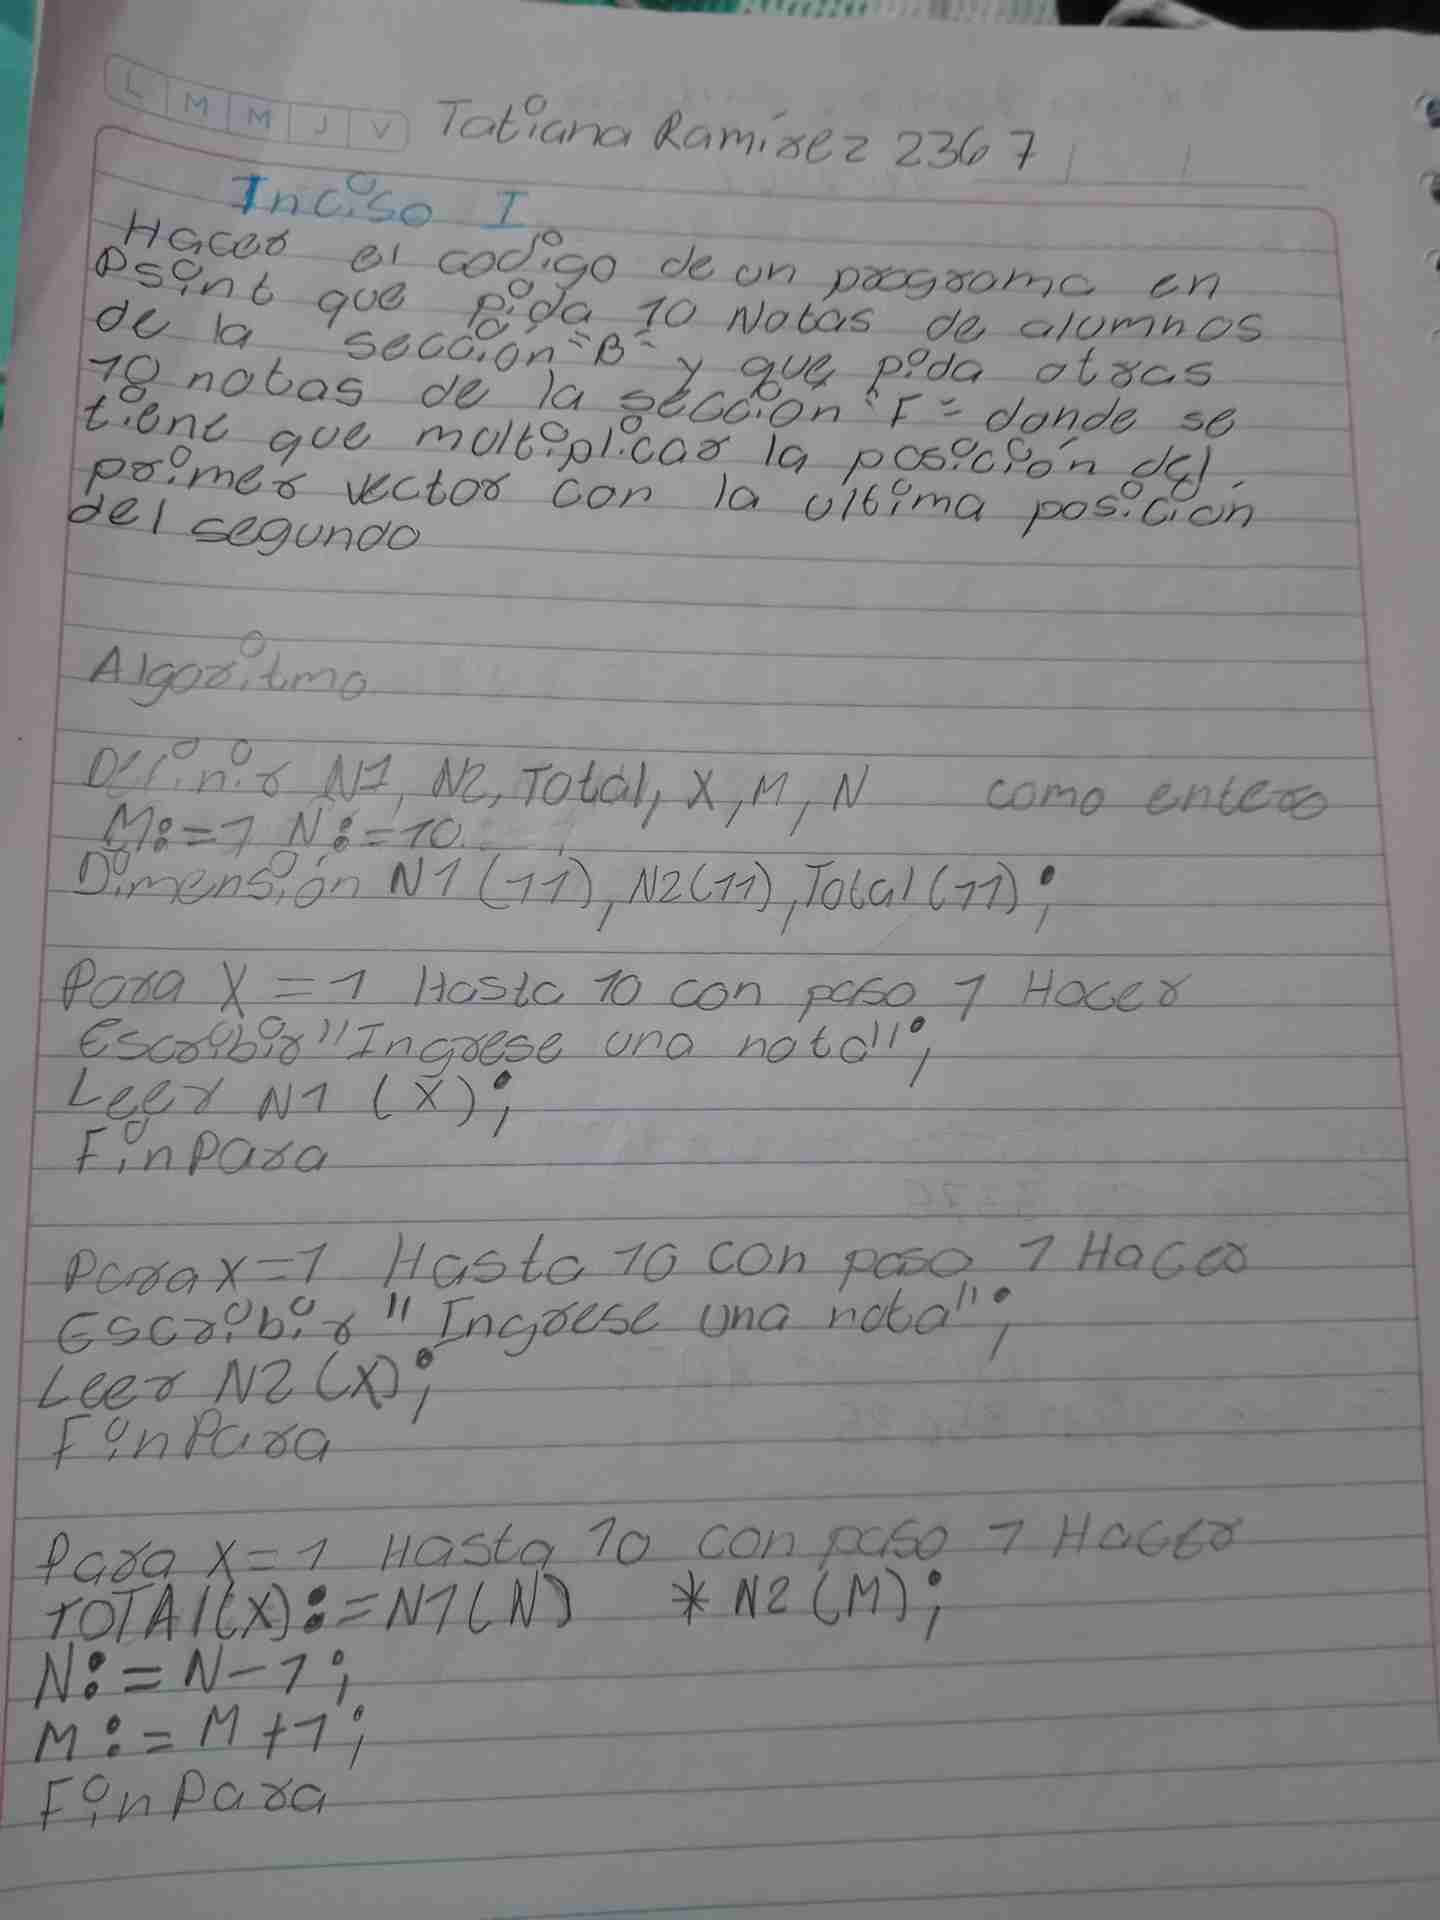 L M M J V
Tatiana Ramírez 2367
Inciso I
Hacer el codigo de un programa en
Psint que pida 10 Notas de alumnos
de la sección "B" y que pida otras
10 notas de la sección "F" donde se
tiene que multiplicar la posición del
primer vector con la ultima posición
del segundo
Algoritmo
Definir N1, N2, Total, X, M, N como entero
M:=1 N:=10
Dimensión N1(11), N2(11), Total(11);
Para X=1 Hasta 10 con paso 1 Hacer
Escribir "Ingrese una nota";
Leer N1 (X);
FinPara
Para X=1 Hasta 10 con paso 1 Hacer
Escribir "Ingrese una nota";
Leer N2 (X);
FinPara
Para X=1 Hasta 10 con paso 1 Hacer
TOTAl(X):=N1(N) * N2(M);
N:=N-1;
M:=M+1;
FinPara